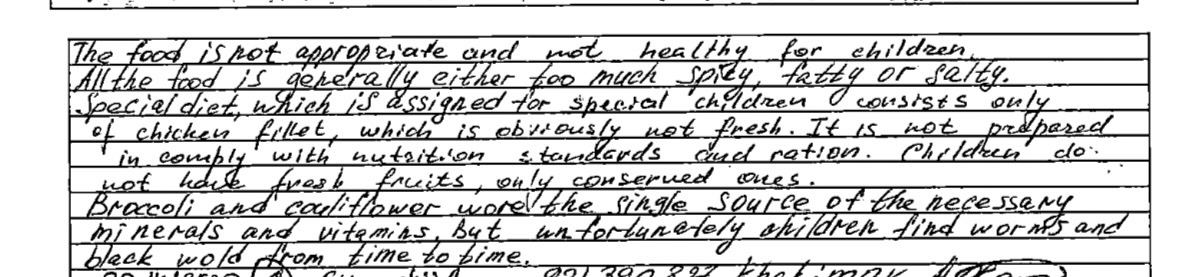 The food is not appropriate and not healthy for children.
All the food is generally either too much spicy, fatty or salty.
Special diet, which is assigned for special children consists only
of chicken fillet, which is obviously not fresh. It is not prepared
in comply with nutrition standards and ration. Children do
not have fresh fruits, only conserved ones.
Broccoli and cauliflower were the single source of the necessary
minerals and vitamins. But unfortunately children find worms and
black wold from time to time.